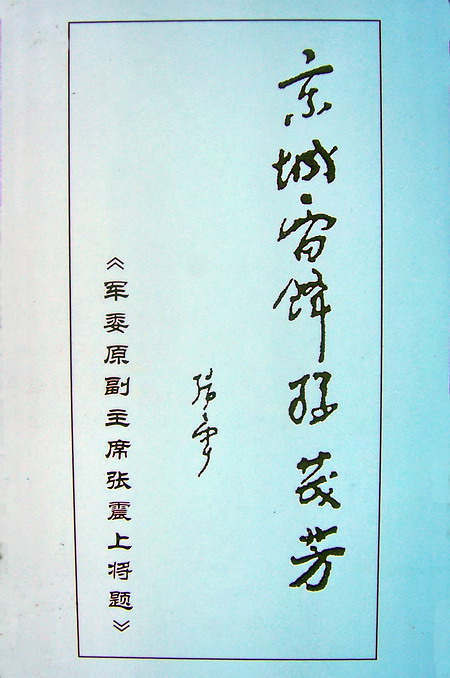 京城雷锋孙茂芳
张震
《军委原副主席张震上将题》